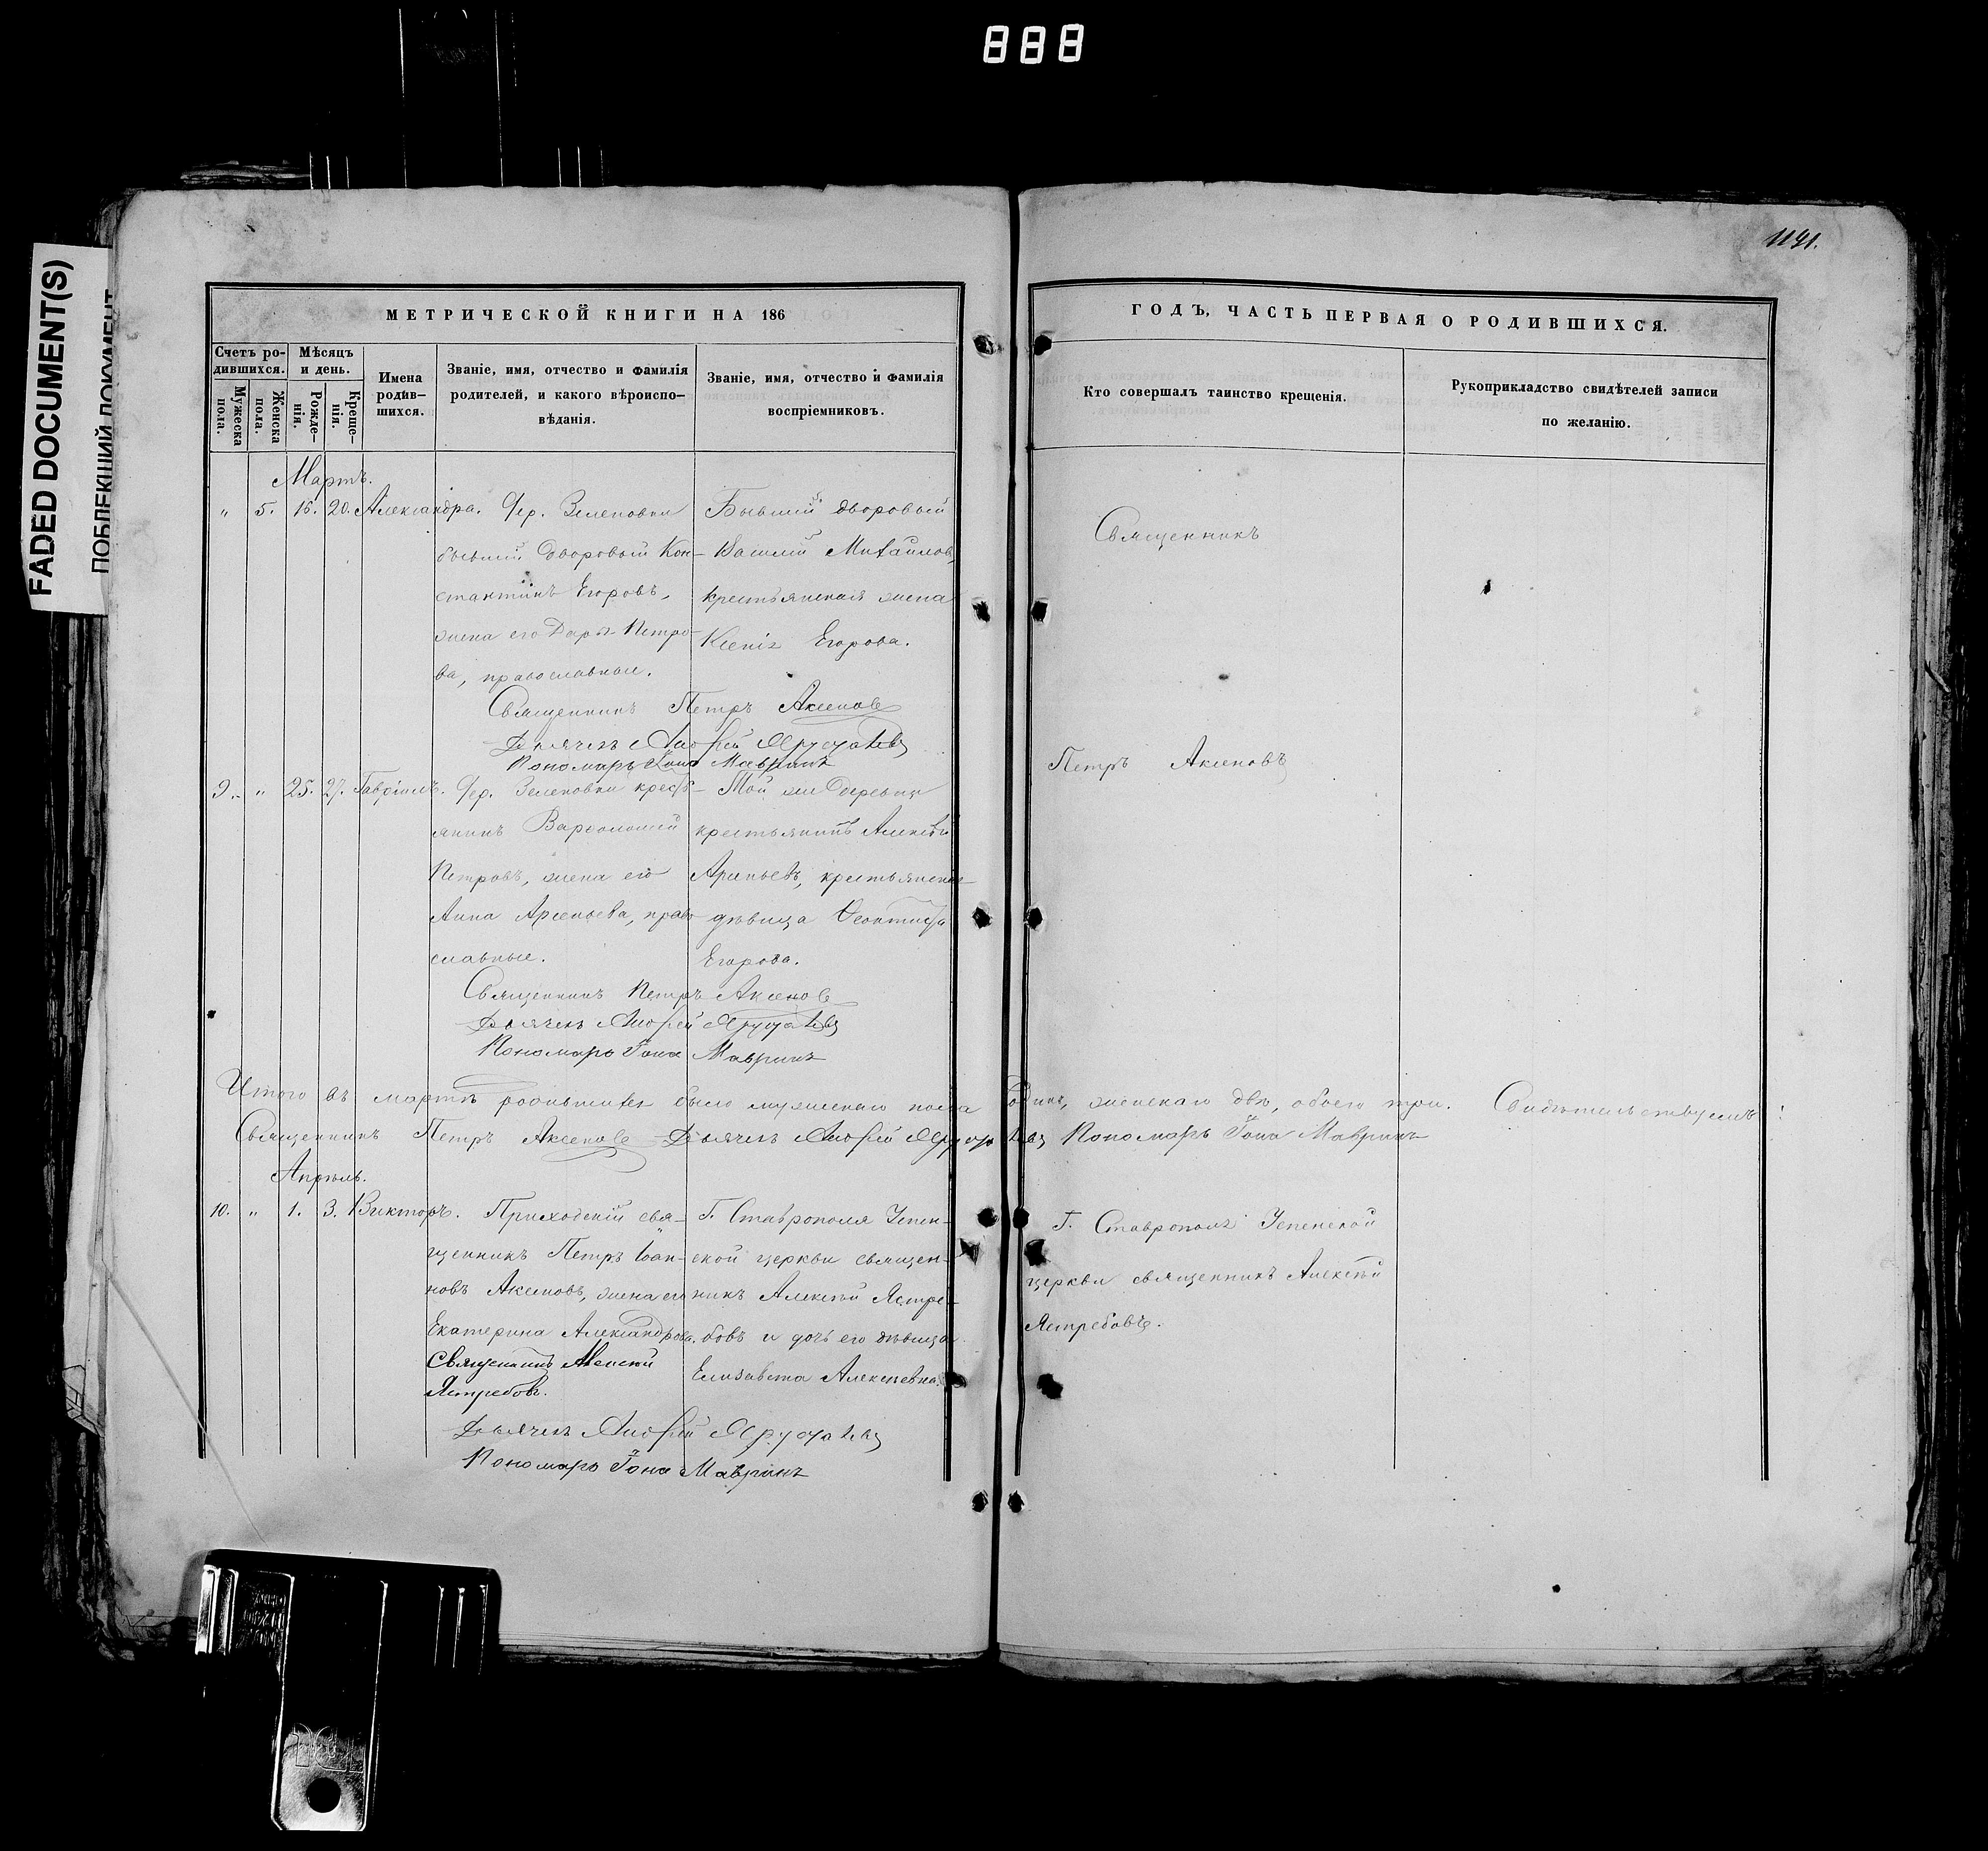 888
FADED DOCUMENT(S)
ПОБЛЕКШИЙ ДОКУМЕНТ
1141.
МЕТРИЧЕСКОЙ КНИГИ НА 186
Счетъ ро-
дившихся.
Мужеска
пола.
Женска
пола.
Мѣсяцъ
и день.
Рожде-
нія.
Креще-
нія.
Имена
родив-
шихся.
Званіе, имя, отчество и фамилія
родителей, и какого вѣроиспо-
вѣданія.
Званіе, имя, отчество и фамилія
воспріемниковъ.
Мартъ.
" 5. 16. 20. Александра.
Дер. Зеленовки
бывшій дворовый Кон-
стантинъ Егоровъ,
жена его Дарья Петро-
ва, православные.
Бывшій дворовый
Василій Михайловъ,
крестьянская жена
Ксенія Егорова.
Священникъ Петръ Аксеновъ
Дьячекъ Андрей
Пономарь Іона Мавринъ
9. " 25. 27. Гавріилъ.
Дер. Зеленовки крест-
янинъ Варѳоломей
Петровъ, жена его
Анна Арсеньева, право-
славные.
Той же деревни
крестьянинъ Алексѣй
крестьянская
дѣвица Ѳеоктиста
Егорова.
Священникъ Петръ Аксеновъ
Дьячекъ Андрей
Пономарь Іона Мавринъ
Итого въ мартѣ родившихся было мужескаго пола одинъ, женскаго двѣ, обоего три. Свидѣтельствуемъ:
Священникъ Петръ Аксеновъ Дьячекъ Андрей Пономарь Іона Мавринъ
Апрѣль.
10. " 1. 3. Викторъ.
Приходскій свя-
щенникъ Петръ Іоан-
новъ Аксеновъ, жена его
Екатерина Александрова.
Священникъ Алексѣй
Ястребовъ.
Г. Ставрополя Успен-
ской церкви священ-
никъ Алексѣй Ястре-
бовъ и дочь его дѣвица
Елизавета Алексѣевна.
Дьячекъ Андрей
Пономарь Іона Мавринъ
ГОДЪ, ЧАСТЬ ПЕРВАЯ О РОДИВШИХСЯ.
Кто совершалъ таинство крещенія.
Рукоприкладство свидѣтелей записи
по желанію.
Священникъ
Петръ Аксеновъ
Г. Ставрополя Успенской
церкви священникъ Алексѣй
Ястребовъ.